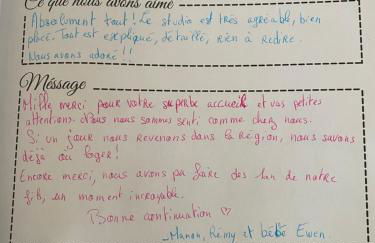 Ce que nous avons aimé
Absolument tout! Le studio est très agréable, bien
placé. Tout est expliqué, détaillé, rien à redire.
Nous avons adoré!!
Méssage
Mille merci pour votre superbe accueil et vos petites
attentions. Nous nous sommes senti comme chez nous.
Si un jour nous revenons dans la région, nous savons
déjà où loger!
Encore merci, nous avons pu faire des 1an de notre
fils, un moment incroyable.
Bonne continuation ♡
-Manon, Rémy et bébé Ewen.